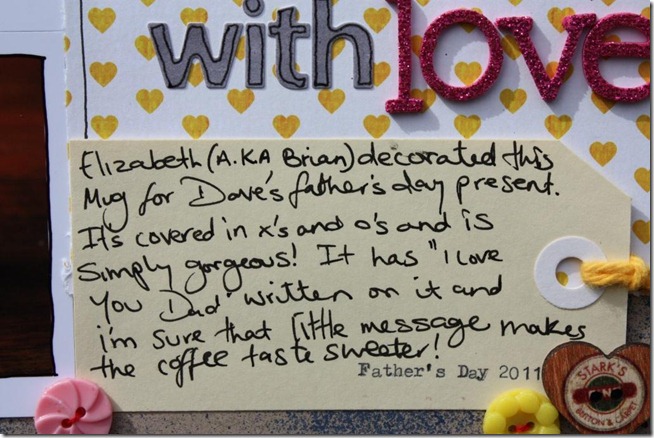 with love
Elizabeth (A.K.A Brian) decorated this
Mug for Dave's father's day present.
It's covered in x's and o's and is
Simply gorgeous! It has "I Love
You Dad" written on it and
i'm sure that little message makes
the coffee taste sweeter!
Father's Day 2011
STARK'S
BUTTON &